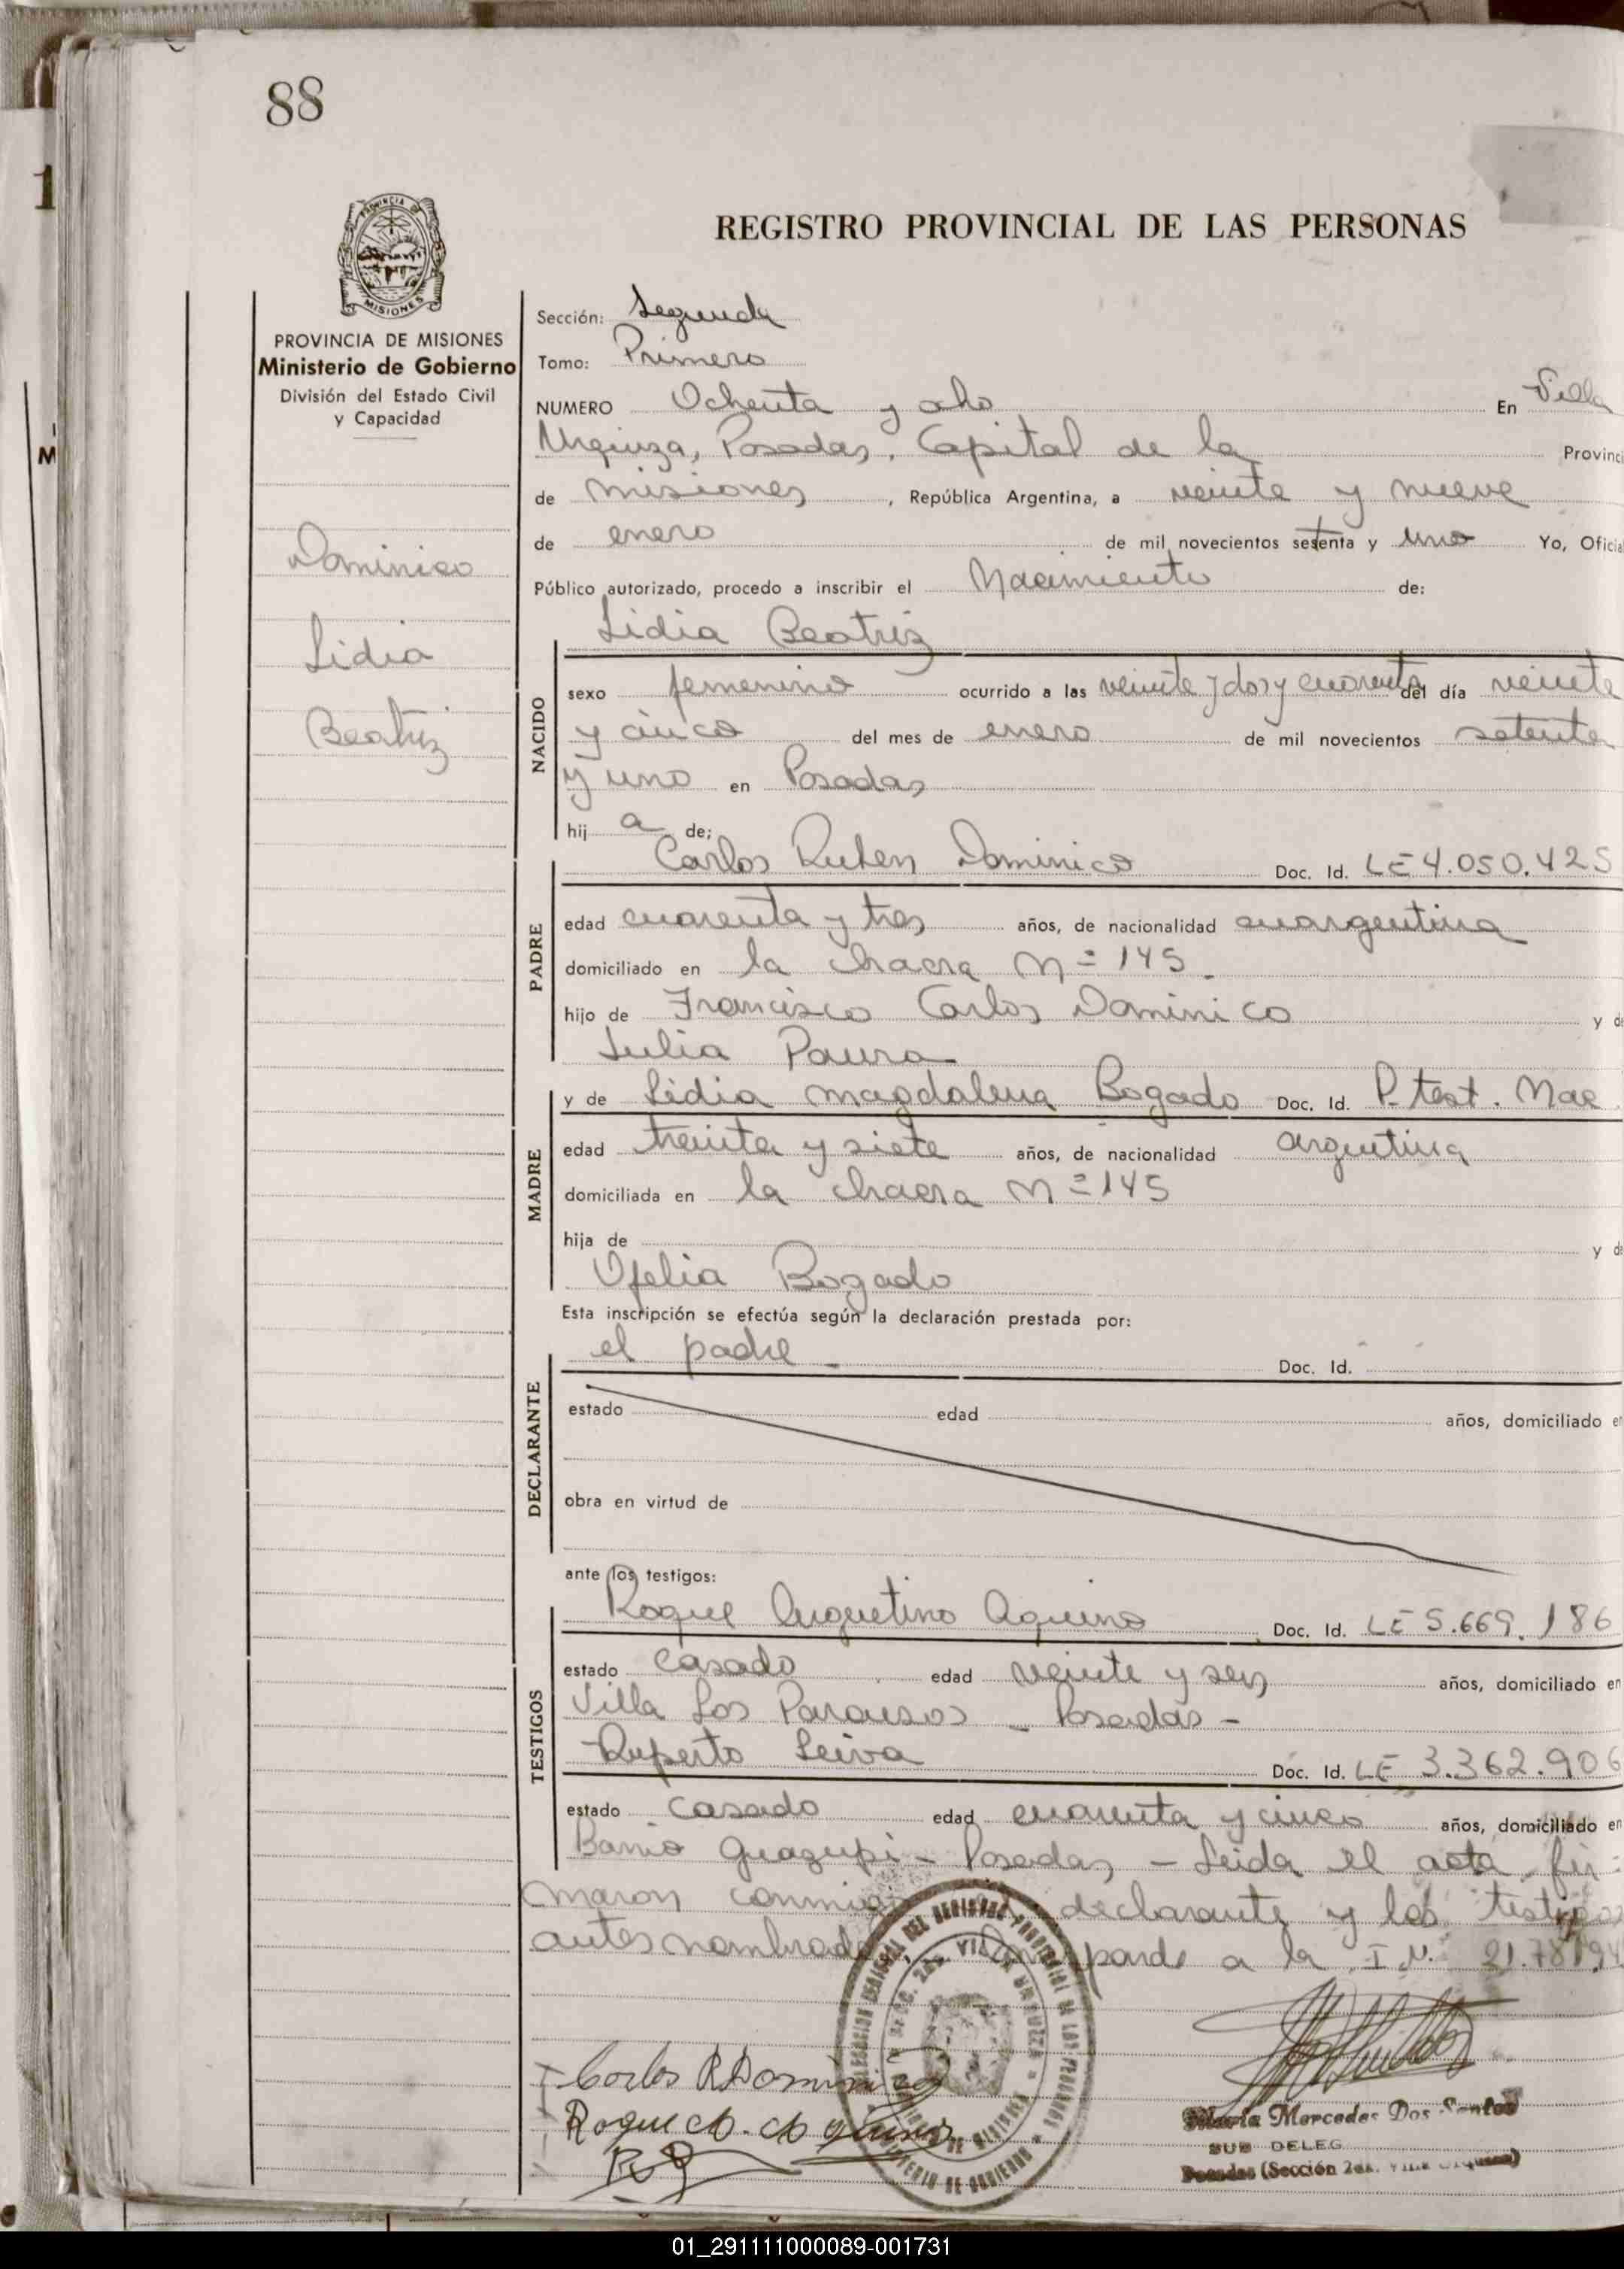 88
REGISTRO PROVINCIAL DE LAS PERSONAS
PROVINCIA DE MISIONES
Ministerio de Gobierno
División del Estado Civil
y Capacidad
Dominico
Lidia
Beatriz
Sección: Segunda
Tomo: Primero
NUMERO Ochenta y ocho En Villa
Urquiza, Posadas, Capital de la Provinci
de Misiones, República Argentina, a veinte y nueve
de enero de mil novecientos setenta y uno Yo, Oficia
Público autorizado, procedo a inscribir el Nacimiento de:
Lidia Beatriz
NACIDO
sexo femenino ocurrido a las veinte y dos y cuarenta del día veinte
y cinco del mes de enero de mil novecientos setenta
y uno en Posadas
hij a de;
Carlos Ruben Dominico Doc. Id. LE 4.050.425
PADRE
edad cuarenta y tres años, de nacionalidad argentina
domiciliado en la chacra Nº 145.
hijo de Francisco Carlos Dominico y d
Julia Paura
y de Lidia Magdalena Bogado Doc. Id. P. test. Nac
MADRE
edad treinta y siete años, de nacionalidad argentina
domiciliada en la chacra Nº 145
hija de y d
Ofelia Bogado
Esta inscripción se efectúa según la declaración prestada por:
el padre Doc. Id.
DECLARANTE
estado edad años, domiciliado en
obra en virtud de
ante los testigos:
Roque Augustino Aquino Doc. Id. LE 5.669.186
TESTIGOS
estado casado edad veinte y seis años, domiciliado en
Villa Los Paraisos - Posadas -
Ruperto Leiva Doc. Id. LE 3.362.906
estado casado edad cuarenta y cinco años, domiciliado en
Barrio Guazupi - Posadas - Leida el acta fir-
maron conmigo declarante y los testigos
antes nombrados a la I.N. 21.781.94
Carlos R Dominico
Roque A. Aquino
Maria Mercedes Dos Santos
SUB DELEG.
Posadas (Sección 2da. Villa Urquiza)
01_291111000089-001731